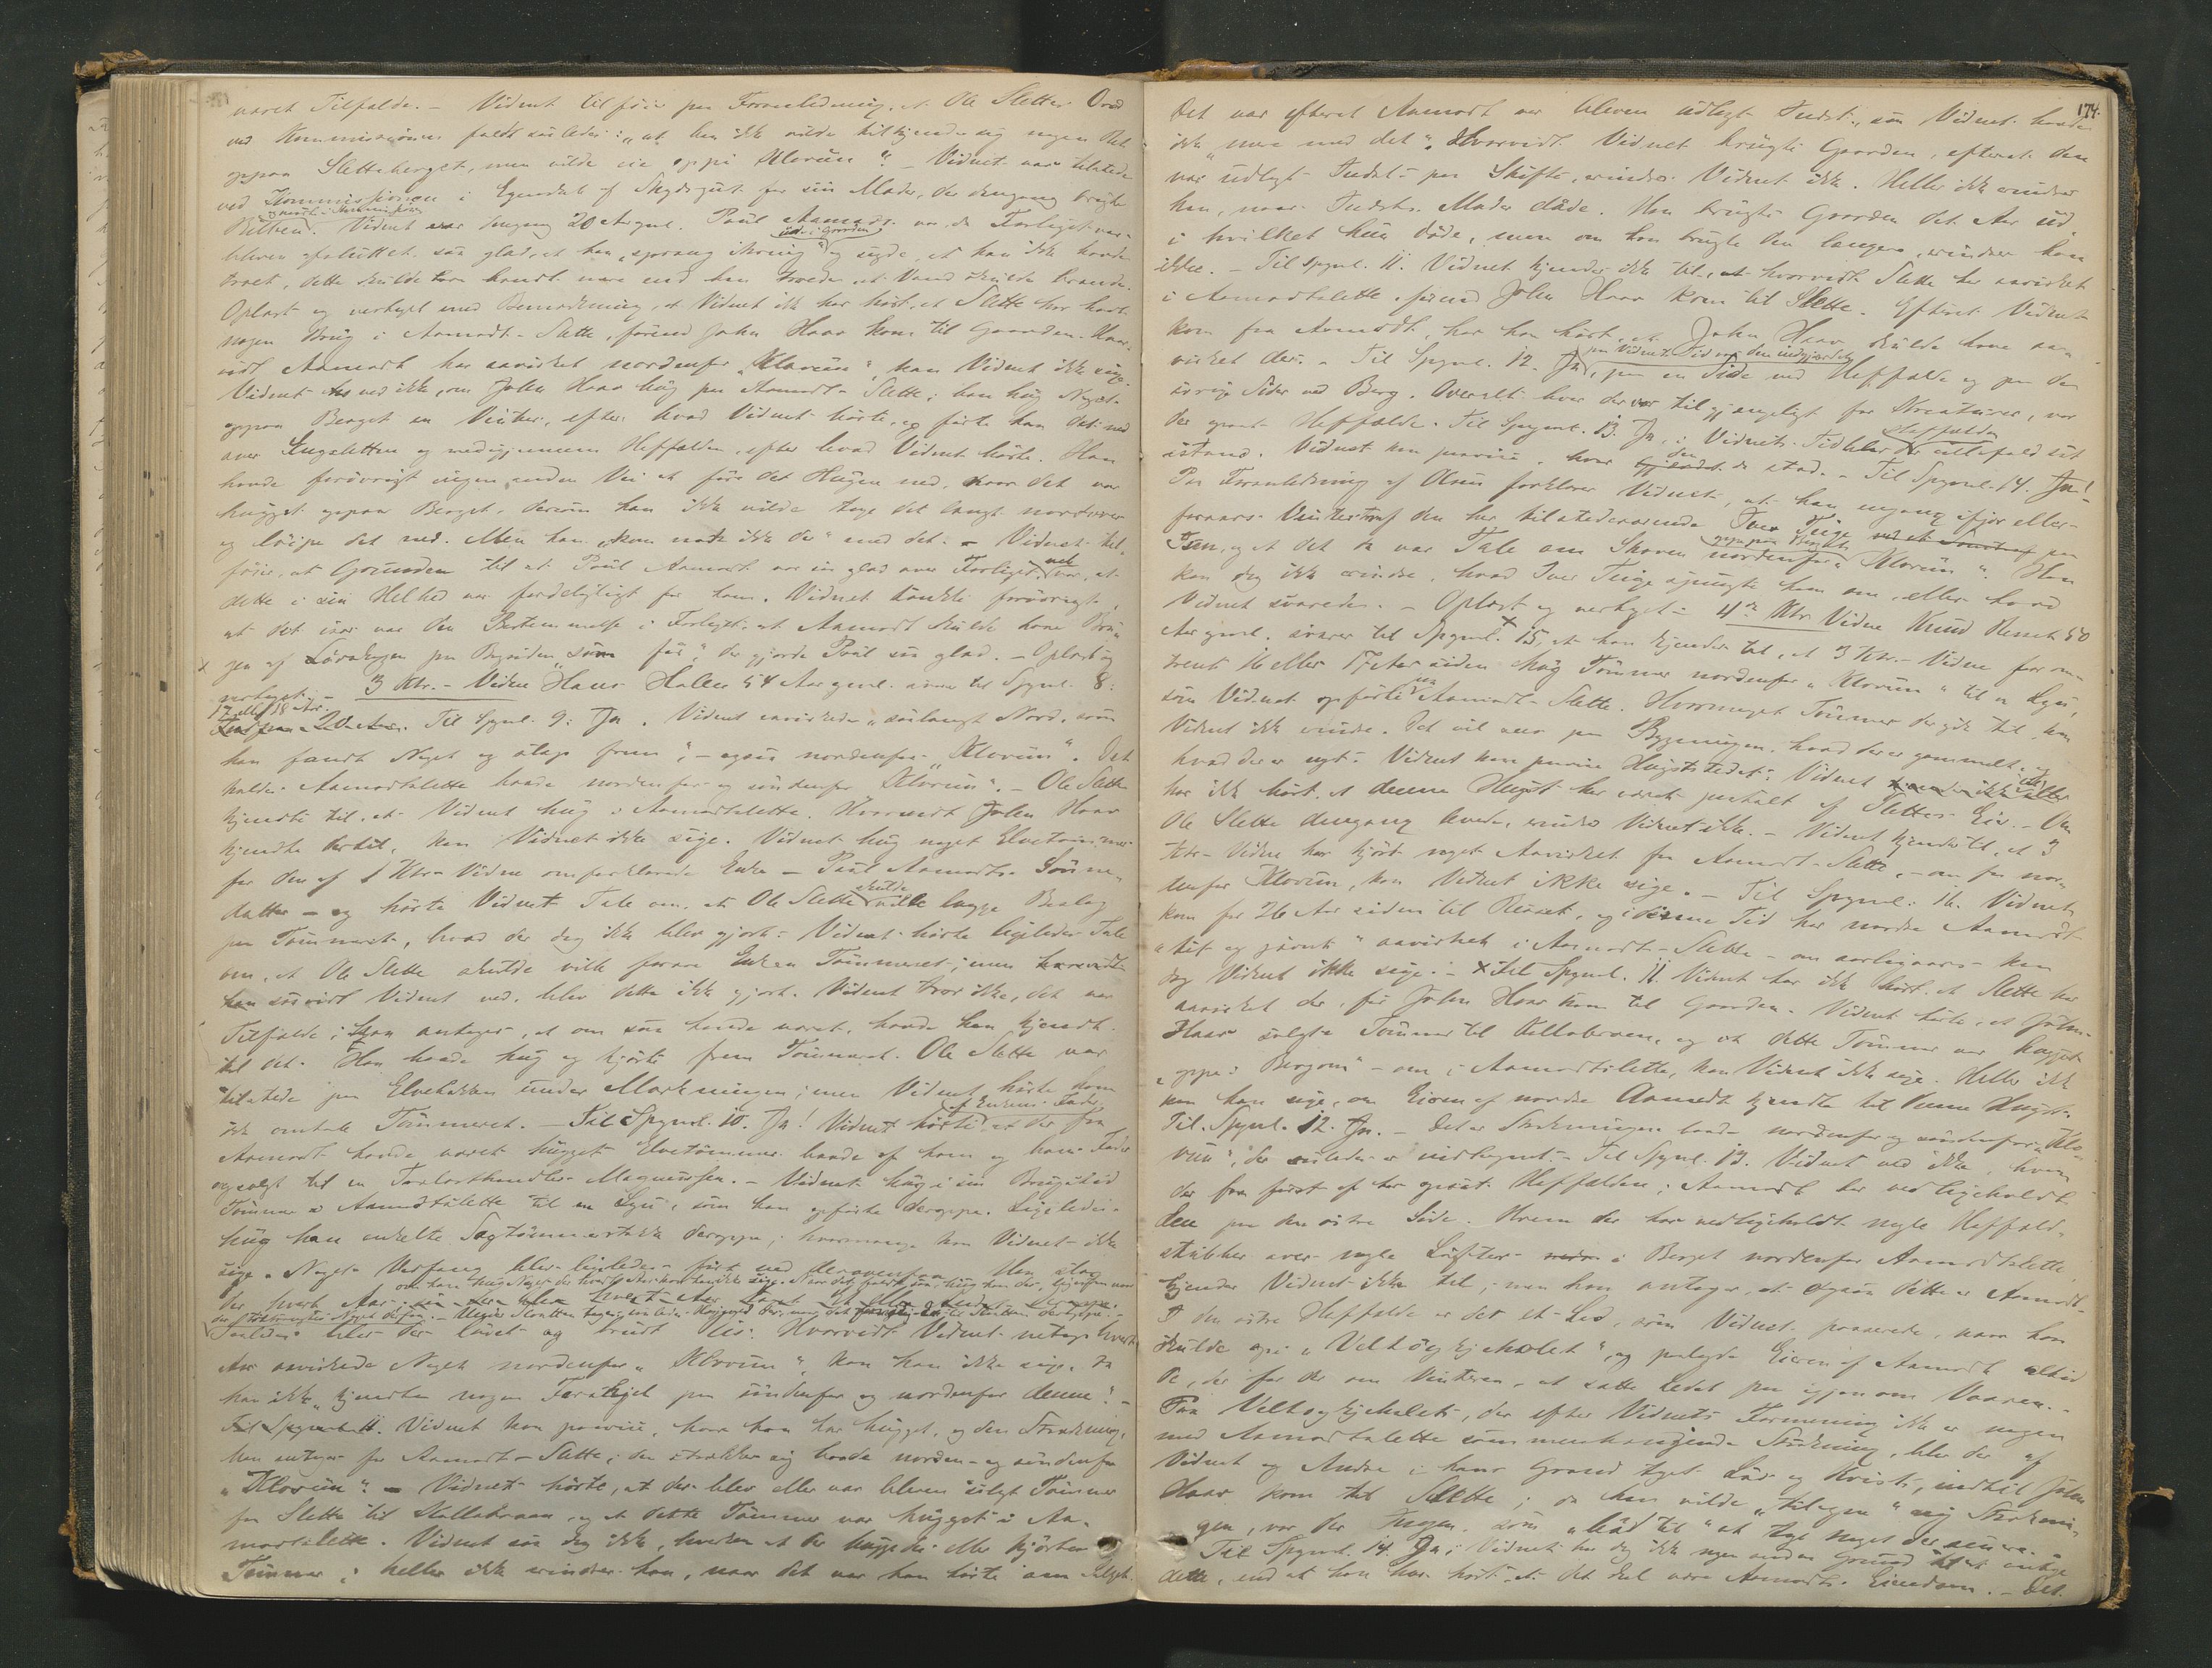 været Tilfælde. – Vidnet tilføier paa Foranledning, at Ole Slettes Ord
ved Kommissionen faldt saaledes: "at han ikke vilde tilkjende sig nogen Ret
oppaa Sletteberget, men vilde vie oppi Klovun". – Vidnet var tilstede
ved Kommissionen i Egenskab af Skydsgut for sin Moder, der dengang brugte
nævnte Kommission
Vidnet var dengang 20 Aar gml. Paul Aamodt var, da Forliget var
ude i Gaarden
bleven afsluttet, saa glad, at han "sprang ikring" og sagde, at han ikke havde
troet, dette skulde have hændt mere end han troede, at Vand skulde brænde.
Oplæst og vedtaget med Bemærkning, at Vidnet ikke har hørt, at Slette har havt
nogen Brug i Aamodt-Slette, førend John Haar kom til Gaarden. Hvor-
vidt Aamodt har aavirket nordenfor "Klovun", kan Vidnet ikke sige.
Vidnet ved ikke, om John Haar hug paa Aamodt-Slette; han hug Noget
oppaa Berget en Vinter, efter hvad Vidnet hørte, og førte han det ned
over Lugsletten og nedigjennem Heffalden, efter hvad Vidnet hørte. Han
havde forøvrigt ingen anden Vei at føre det Hugne ned, naar det var
hugget oppaa Berget, dersom han ikke vilde tage det langt nordover
og løipe det ned. Men han "kom nok ikke der" med det. – Vidnet til-
føier, at Grunden til at Paul Aamodt var saa glad over Forliget, nok var, at
dette i sin Helhed var fordelagtigt for ham. Vidnet tænkte forøvrigt,
at det især var den Bestemmelse i Forliget, at Aamodt skulde have Bru-
gen af Løvskogen paa Bergsiden "som før", der gjorde Paul saa glad. – Oplæst og
vedtaget. – 3 Ktr.-Vidne Hans Hallen 54 Aar gml. svarer til Spgml. 8:
17 eller 18 Aar.
Til Spgml. 9: Ja. Vidnet aavirkede "saalangt Nord, som
han fandt Noget og slap frem", – ogsaa nordenfor "Klovun". Det
kaldes Aamodtslette baade nordenfor og søndenfor "Klovun". – Ole Slette
kjendte til, at Vidnet hug i Aamodtslette. Hvorvidt John Haar
kjendte dertil, kan Vidnet ikke sige. Vidnet hug noget Elvetømmer
for den af 1 Ktr-Vidne omforklarede Enke – Paul Aamodts Sønne-
datter – og hørte Vidnet Tale om, at Ole Slette skulde ville lægge Beslag
paa Tømmeret, hvad der dog ikke blev gjort. Vidnet hørte ligeledes Tale
om, at Ole Slette skulde ville forære Enken Tømmeret; men
saavidt Vidnet ved, blev dette ikke gjort. Vidnet tror ikke, det var
Tilfælde; han antager, at om saa havde været, havde han kjendt
til det. Han baade hug og kjørte frem Tømmeret. Ole Slette var
tilstede paa Elvebakken under Mærkningen; men Vidnet hørte ham
af Enkens Fader
ikke omtale Tømmeret. – Til Spgml. 10. Ja! Vidnet hørte, at der fra
Aamodt havde været hugget Elvetømmer baade af ham og hans Fader
og solgt til en Trælasthandler Magnussen. – Vidnet hug i sin Brugstid
Tømmer i Aamodtslette til en Lyu, som han opførte deroppe. Ligeledes
hug han enkelte Sagtømmerstokke deroppe; hvormange kan Vidnet ikke
sige. Noget Vedfang blev ligeledes ført ned derovenfra.
blev der løvet og brudt Ris. Hvorvidt Vidnet netop hvert
Aar aavirkede Noget nordenfor "Klovun", kan han ikke sige, da
han ikke "kjendte nogen Forskjel paa søndenfor og nordenfor denne". –
Til Spgml. 11. Vidnet kan paavise, hvor han har hugget, og den Strækning,
han antager for Aamodt-Slette; den strækker sig baade norden- og søndenfor
"Klovun". – Vidnet hørte, at der blev eller var bleven solgt Tømmer
fra Slette til Kallebraaen, og at dette Tømmer var hugget i Aa-
modtslette. Vidnet saa dog ikke, hverken at de huggede eller kjørte
Tømmer; heller ikke erindrer han, naar det var han hørte om Salget.
174.
Det var efterat Aamodt var bleven udlagt Indst., saa Vidnet havde
ikke "mere med det". Hvorvidt Vidnet brugte Gaarden, efterat den
var udlagt Indst. paa Skifte, erindrer Vidnet ikke. Heller ikke erindrer
han, naar Indsts. Moder døde. Han brugte Gaarden det Aar ud,
i hvilket hun døde, men om han brugte den længere, erindrer han
ikke. – Til Spgml. 11. Vidnet kjender ikke til, hvorvidt Slette har aavirket
i Aamodtslette, førend John Haar kom til Slette. Efterat Vidnet
kom fra Aamodt, har han hørt, at John Haar skulde have aa-
paa Vidnets Tid var den indgjærdet
virket der. – Til Spgml. 12. Ja, paa en Side ved Heffalde og paa de
øvrige Sider ved Berg. Overalt hvor der var tilgjængeligt for Kreaturer, var
der opsat Heffalde. Til Spgml. 13. Ja, i Vidnets Tid blev Heffalden altfald sat
istand. Vidnet kan paavise, hvor den stod. – Til Spgml. 14. Ja!
Paa Foranledning af Olsen forklarer Vidnet, at han engang ifjor eller
foraars Vinter traf den her tilstedeværende Iver Tuige paa
oppaa Berget
og at det da var Tale om Skoven nordenfor "Klovun". Han
kan dog ikke erindre, hvad Iver Tuige spurgte ham om, eller hvad
Vidnet svarede. – Oplæst og vedtaget. – 4de Ktr. Vidne Knud Reset 50
Aar gml. svarer til Spgml. 15, at han kjender til, at 3 Ktr.-Vidne for om-
trent 16 eller 17 Aar siden hug Tømmer nordenfor "Klovun" til en Lyu,
som Vidnet opførte paa Aamodt-Slette. Hvormeget Tømmer der gik til, kan
Vidnet ikke erindre. Det vil sees paa Bygningen, hvad der er gammelt og
hvad der er nyt. Vidnet kan paavise Hugststedet. Vidnet
har ikke hørt, at denne Hugst har været paatalt af Slettes Eier. – Om
Ole Slette dengang levede, erindrer Vidnet ikke. – Vidnet kjender til, at 3
Ktr-Vidne har kjørt noget Aavirket fra Aamodt-Slette, – om fra nor-
denfor Klovun, kan Vidnet ikke sige. – Til Spgml. 16. Vidnet
kom for 26 Aar siden til Reset, og i denne Tid har nordre Aamodt
"tit og jævnt" aavirket i Aamodt-Slette – om aarligaars – kan
dog Vidnet ikke sige. – X Til Spgml. 11. Vidnet har ikke hørt, at Slette har
aavirket der, før John Haar kom til Gaarden. Vidnet hørte, at John
Haar solgte Tømmer til Kallebraaen, og at dette Tømmer var hugget
"oppi Bergom" – om i Aamodtslette, kan Vidnet ikke sige. Heller ikke
kan han sige, om Eieren af nordre Aamodt kjendte til denne Hugst.
Til Spgml. 12. Ja. – Det er Strækningen baade nordenfor og søndenfor "Klo-
vun", der saaledes er indhegnet. – Til Spgml. 13. Vidnet ved ikke, hvem
der fra først af har opsat Heffalden; Aamodt har vedligeholdt
den paa den østre Side. Hvem der har vedligeholdt nogle Heffald-
stubber over nogle Lufter i Berget nordenfor Aamodtslette,
kjender Vidnet ikke til; men han antager, at ogsaa dette er Aamodt.
I den østre Heffalde er det et Led, som Vidnet passerede, naar han
skulde op i "Veltøygjeholet", og paalagde Eieren af Aamodt altid
de, der for der om Vinteren, at sætte Ledet paa igjen om Vaaren. –
Fra Veltøygjeholet, der efter Vidnets Formening ikke er nogen
med Aamodtslette sammenhængende Strækning, blev der af
Vidnet og Andre i hans Grænd taget Løv og Kvist, indtil John
Haar kom til Slette; da han vilde "tilegne" sig Stræknin-
gen, var der Ingen, som "bød til" at tage noget der senere. –
Til Spgml. 14. Ja; Vidnet har dog ikke nogen anden Grund til at antage
dette, end at han har hørt, at det skal være Aamodts Eiendom. – Det